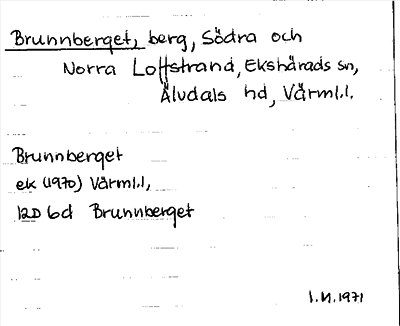 Brunnberget, berg, Södra och
Norra Loffstrand, Ekshärads sn,
Älvdals hd, Värml.l.
Brunnberget
ek (1970) Värml.l,
12D 6d Brunnberget
1.11.1971